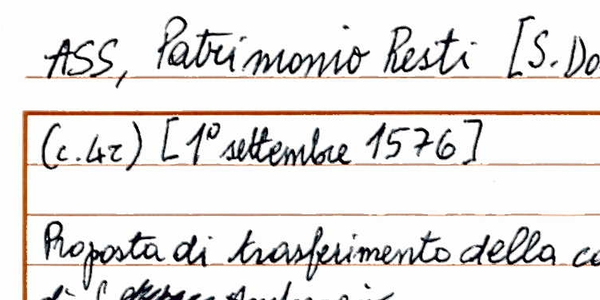 ASS, Patrimonio Resti [S. Do
(c.4r) [1º settembre 1576]
Proposta di trasferimento della co
di S.